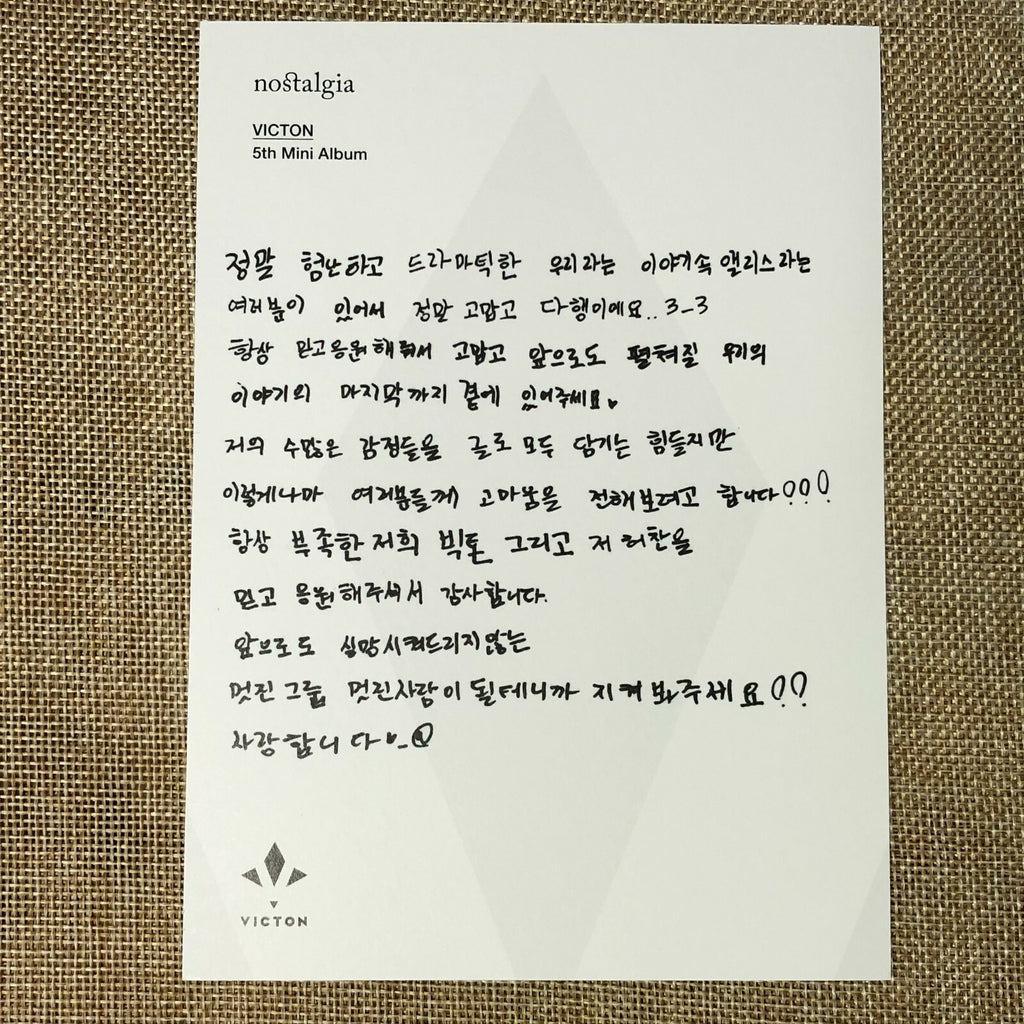 nostalgia
VICTON
5th Mini Album
정말 험난하고 드라마틱한 우리라는 이야기속 앨리스라는
여러분이 있어서 정말 고맙고 다행이에요.. 3_3
항상 믿고 응원해줘서 고맙고 앞으로도 펼쳐질 우리의
이야기의 마지막까지 곁에 있어주세요♥
저의 수많은 감정들을 글로 모두 담기는 힘들지만
이렇게나마 여러분들께 고마움을 전해보려고 합니다!!!
항상 부족한 저희 빅톤 그리고 저 허찬을
믿고 응원해주셔서 감사합니다.
앞으로도 실망시켜드리지 않는
멋진 그룹 멋진사람이 될테니까 지켜봐주세요!!
사랑합니다
VICTON